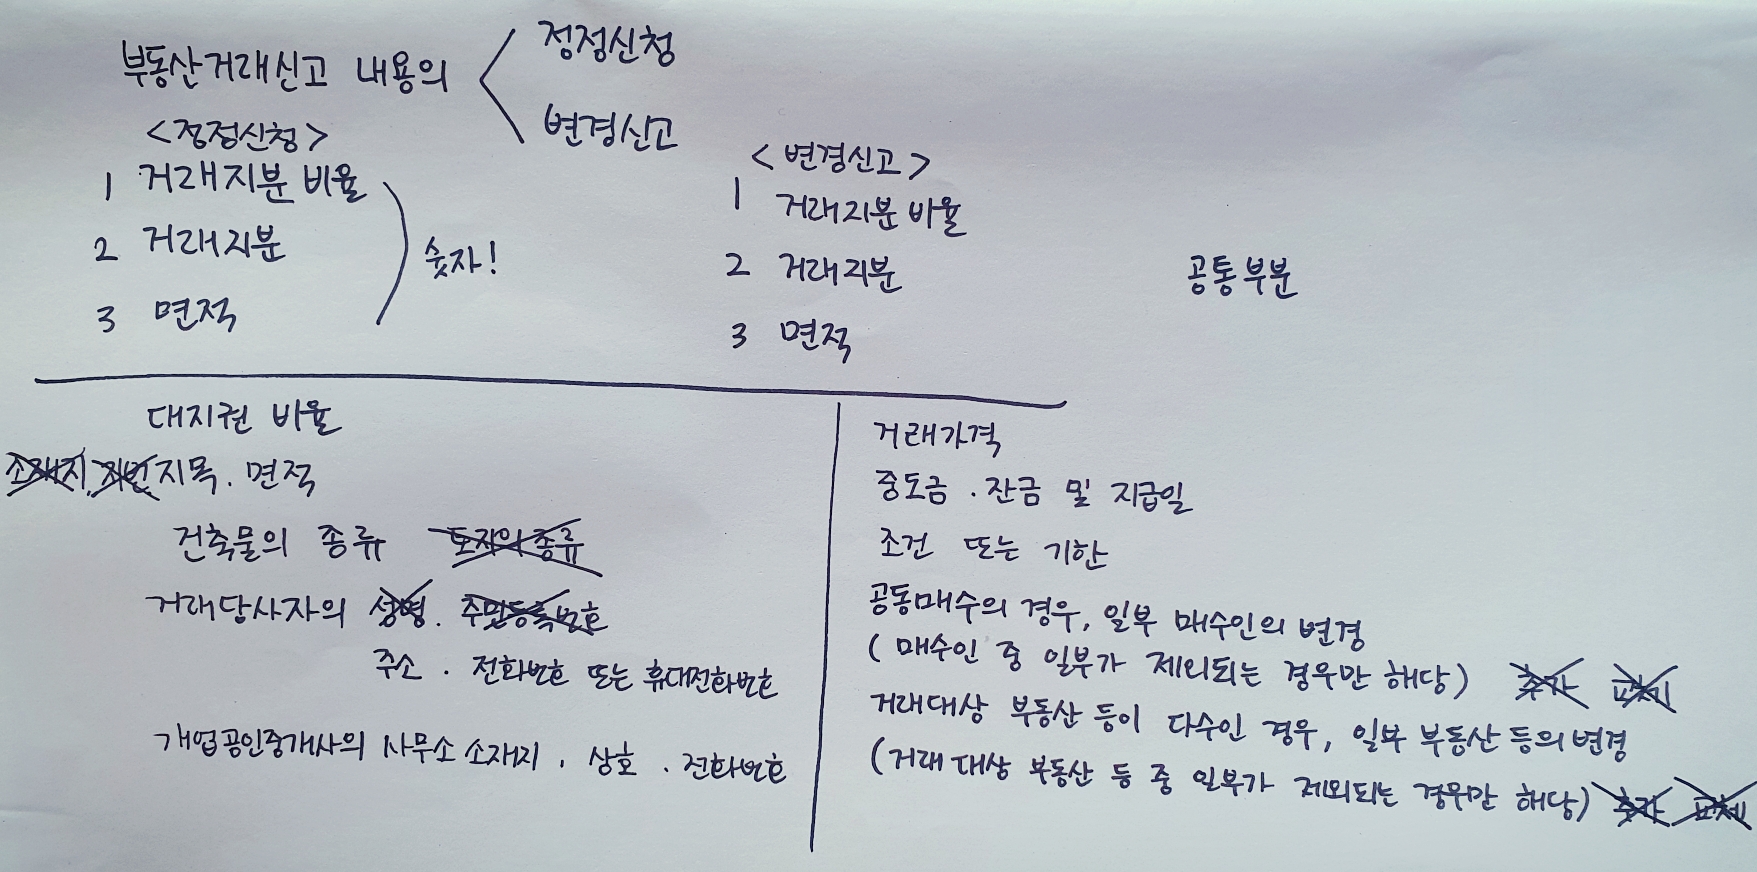 부동산거래신고 내용의
정정신청
변경신고
<정정신청>
1 거래지분 비율
2 거래지분
3 면적
숫자!
<변경신고>
1 거래지분 비율
2 거래지분
3 면적
공통부분
대지권 비율
소재지, 지번 지목. 면적
건축물의 종류 토지의 종류
거래당사자의 성명. 주민등록번호
주소 . 전화번호 또는 휴대전화번호
개업공인중개사의 사무소 소재지 . 상호 . 전화번호
거래가격
중도금 . 잔금 및 지급일
조건 또는 기한
공동매수의 경우, 일부 매수인의 변경
(매수인 중 일부가 제외되는 경우만 해당) 추가 교체
거래대상 부동산 등이 다수인 경우, 일부 부동산 등의 변경
(거래 대상 부동산 등 중 일부가 제외되는 경우만 해당) 추가 교체